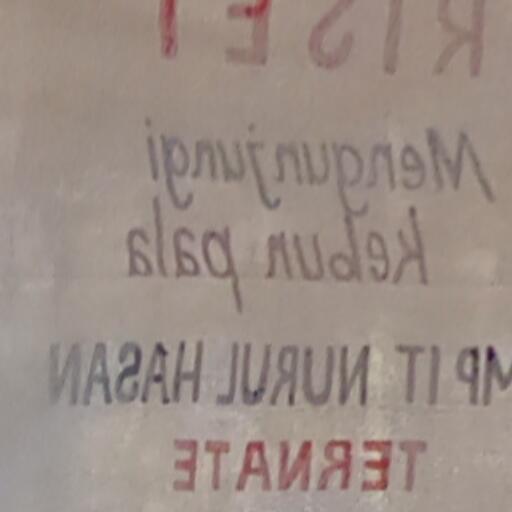 RISET
Mengunjungi
kebun pala
MP IT NURUL HASAN
TERNATE